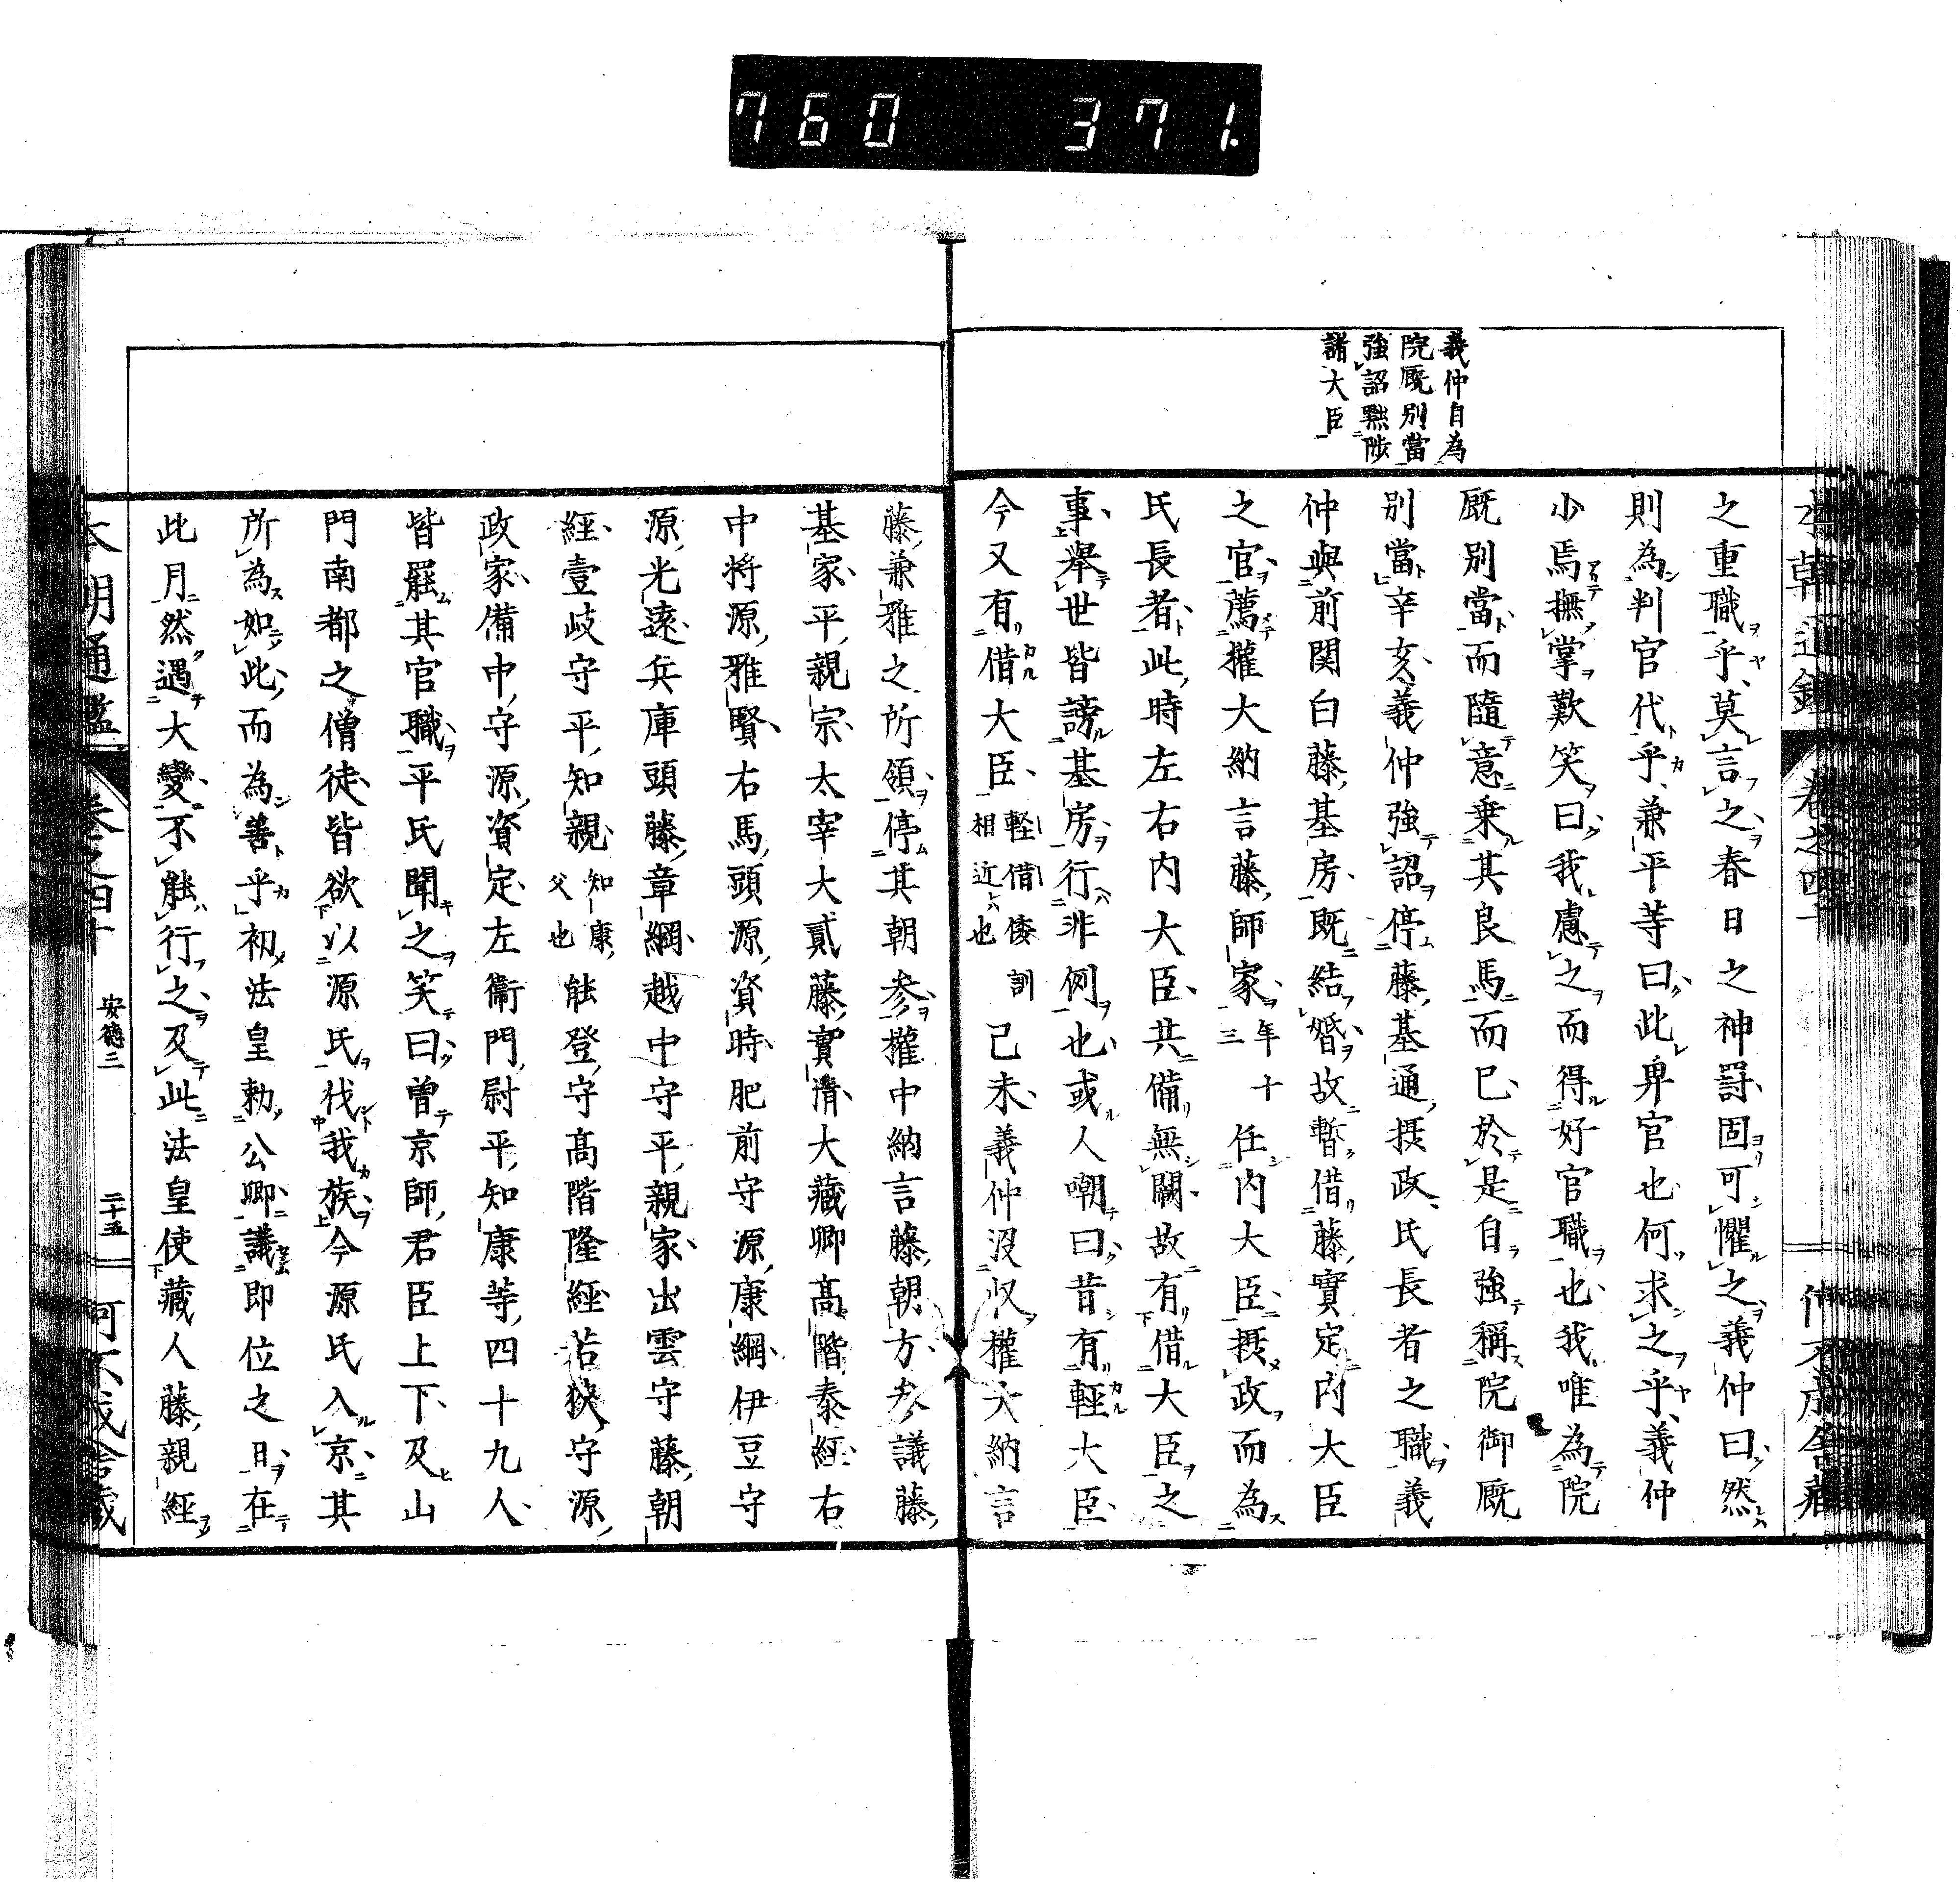 760 371.
義仲自為
院厩別當
強詔黜陟
諸大臣
之重職乎莫言之春日之神罸固可懼之義仲曰然
則為判官代乎兼平等曰此卑官也何求之乎義仲
少焉撫掌歎笑曰我慮之而得好官職也我唯為院
厩別當而隨意乗其良馬而巳於是自強稱院御厩
別當辛亥義仲強詔停藤基通摂政氏長者之職義
仲與前関白藤基房既結婚故暫借藤實定内大臣
之官薦權大納言藤師家年十三任内大臣摂政而為
氏長者此時左右内大臣共備無闕故有借大臣之
事舉世皆謗基房行非例也或人嘲曰昔有輕大臣
今又有借大臣輕借倭訓相近也己未義仲没収權大納言
藤兼雅之所領停其朝参權中納言藤朝方参議藤
基家平親宗太宰大貳藤實清大藏卿髙階泰經右
中将源雅賢右馬頭源資時肥前守源康綱伊豆守
源光遠兵庫頭藤章綱越中守平親家出雲守藤朝
經壹岐守平知親知康父也能登守髙階隆經若狹守源
政家備中守源資定左衞門尉平知康等四十九人
皆罷其官職平氏聞之笑曰曽京師君臣上下及山
門南都之僧徒皆欲以源氏伐我族今源氏入京其
所為如此而為善乎初法皇勅公卿議即位之日在
此月然遇大變不能行之及此法皇使藏人藤親經
本朝通鑑 卷之四十 安徳二 二十五